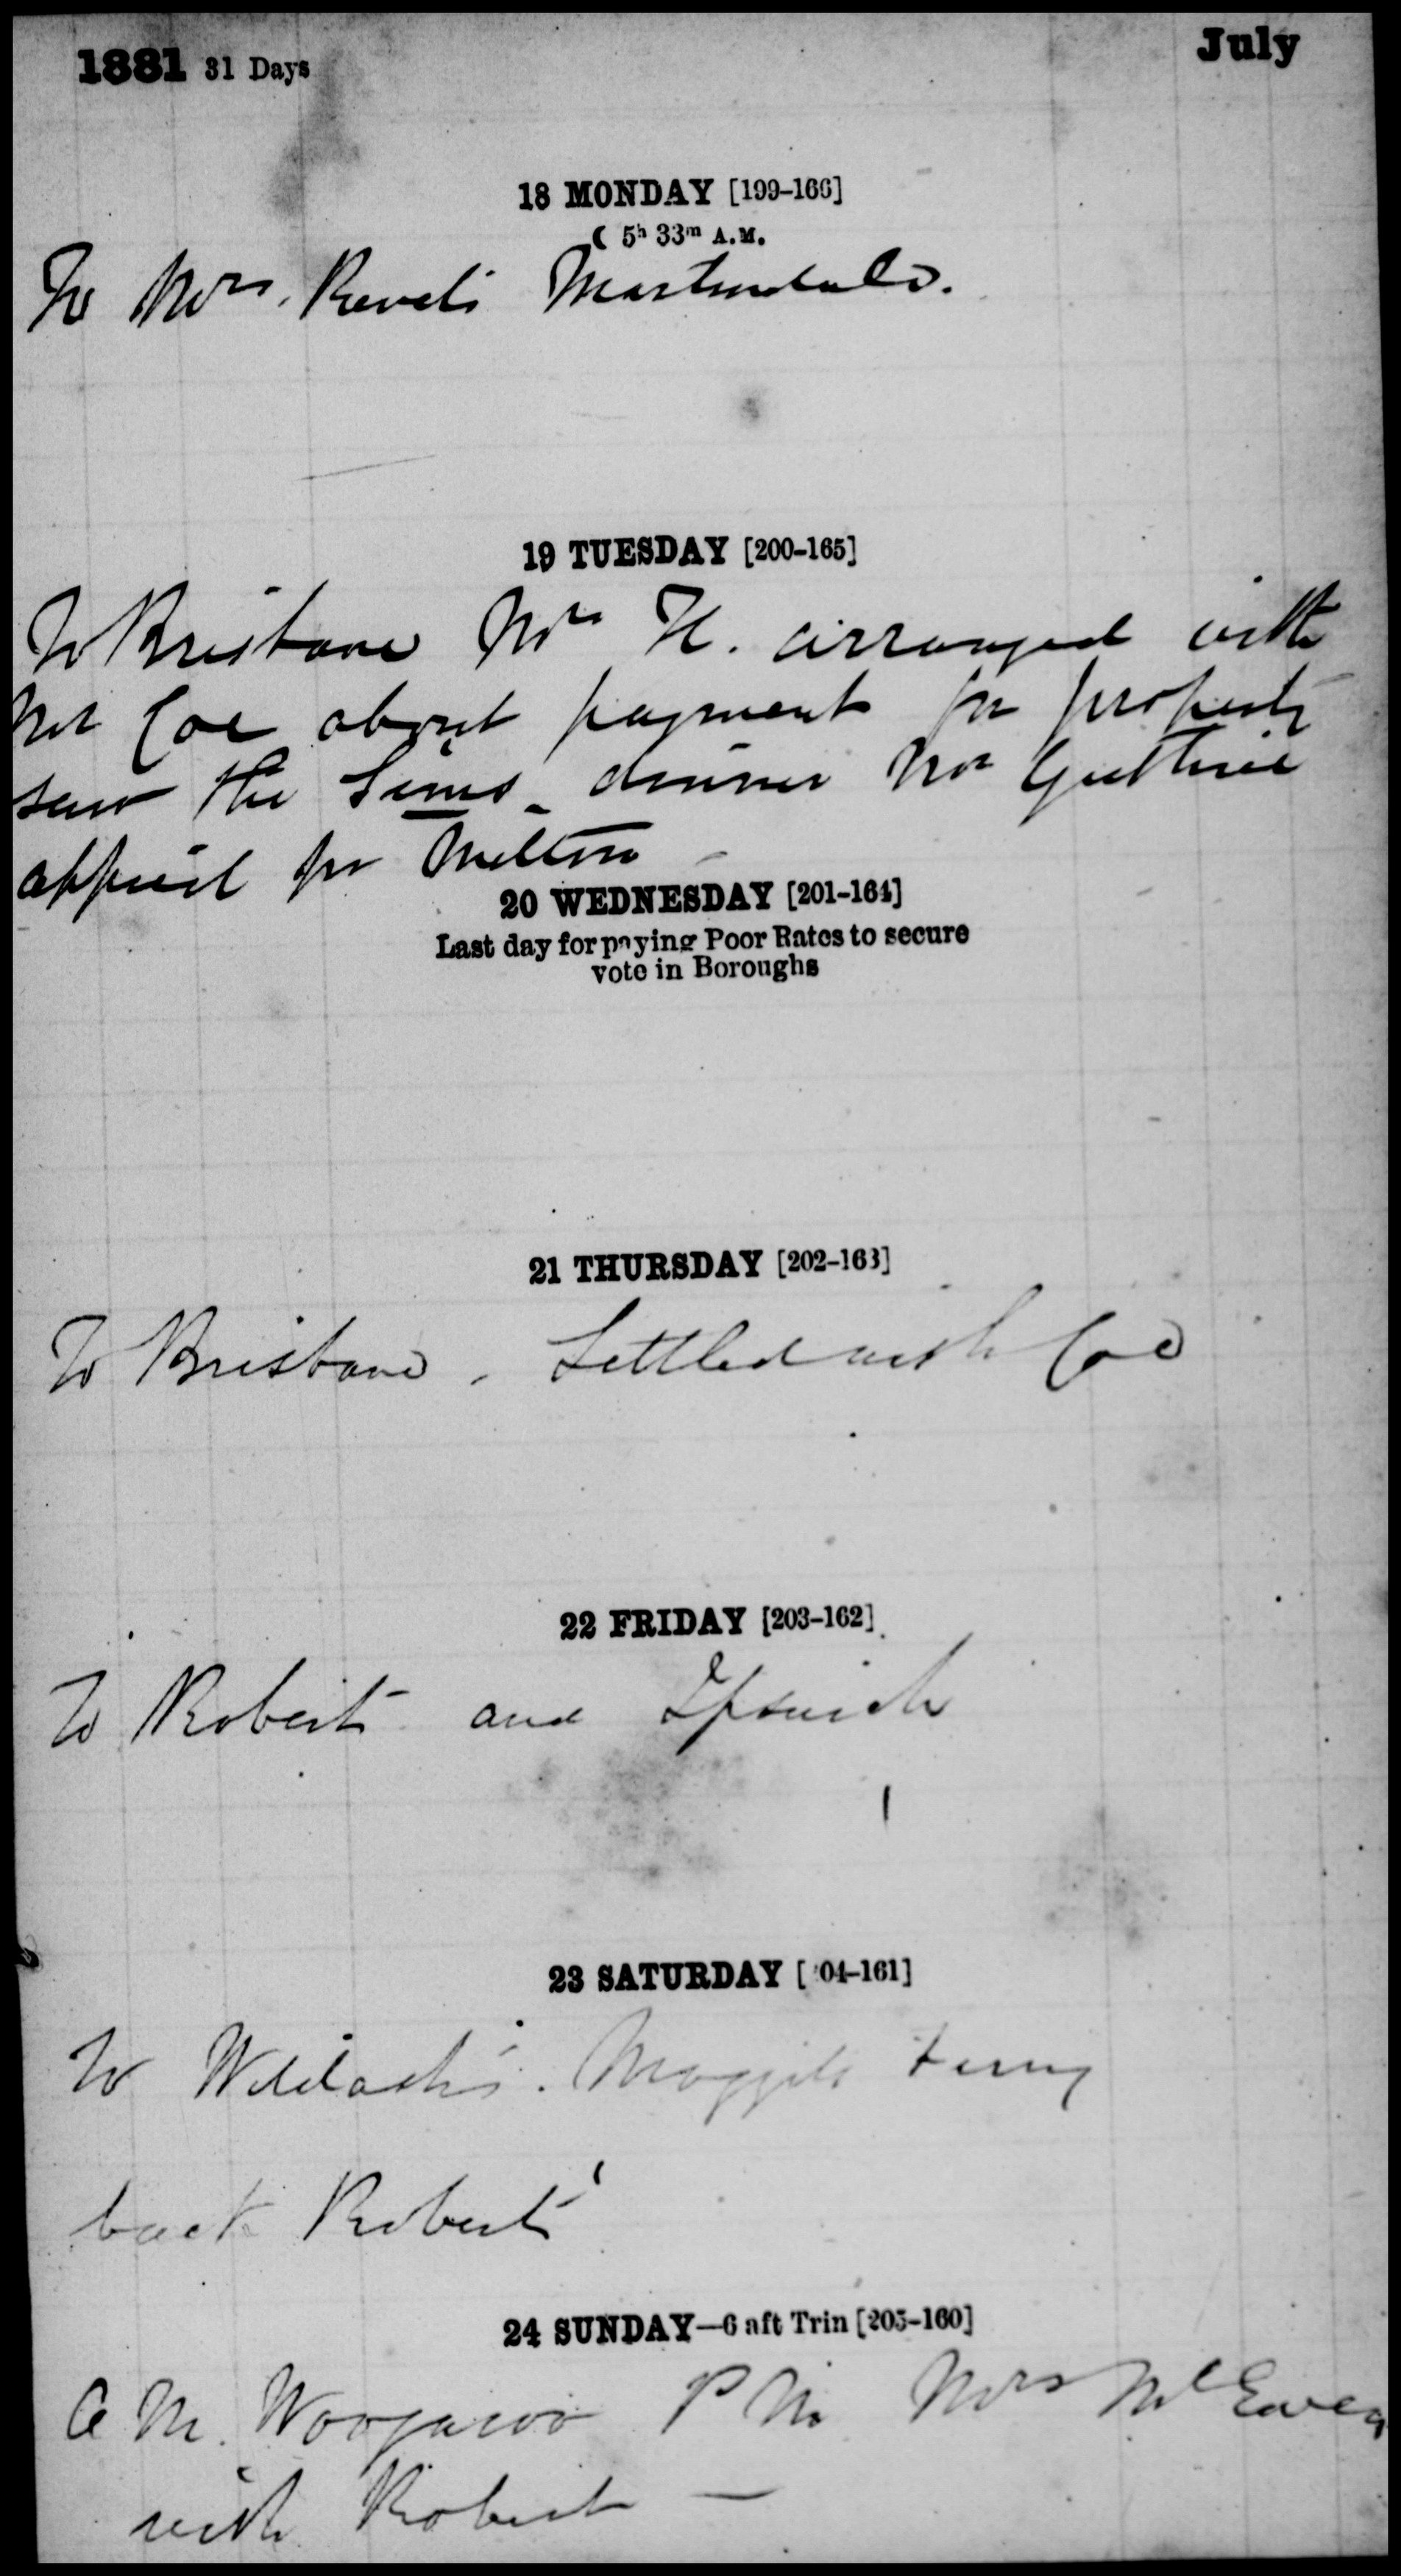 1881 31 Days July
18 MONDAY [199-166]
☾ 5h 33m A.M.
To Mrs. Martindale.
19 TUESDAY [200-165]
To Brisbane Mrs H. arranged with
Mr Coe about payment for property
saw the Sims - dinner Mr Guthrie
for Milton -
20 WEDNESDAY [201-164]
Last day for paying Poor Rates to secure
vote in Boroughs
21 THURSDAY [202-163]
To Brisbane. Settled with Coe
22 FRIDAY [203-162]
To Roberts and Ipswich
23 SATURDAY [204-161]
To Moggill Ferry
back Roberts'
24 SUNDAY—6 aft Trin [205-160]
A M. Woogaroo P M. Mrs McEwen
with Robert —